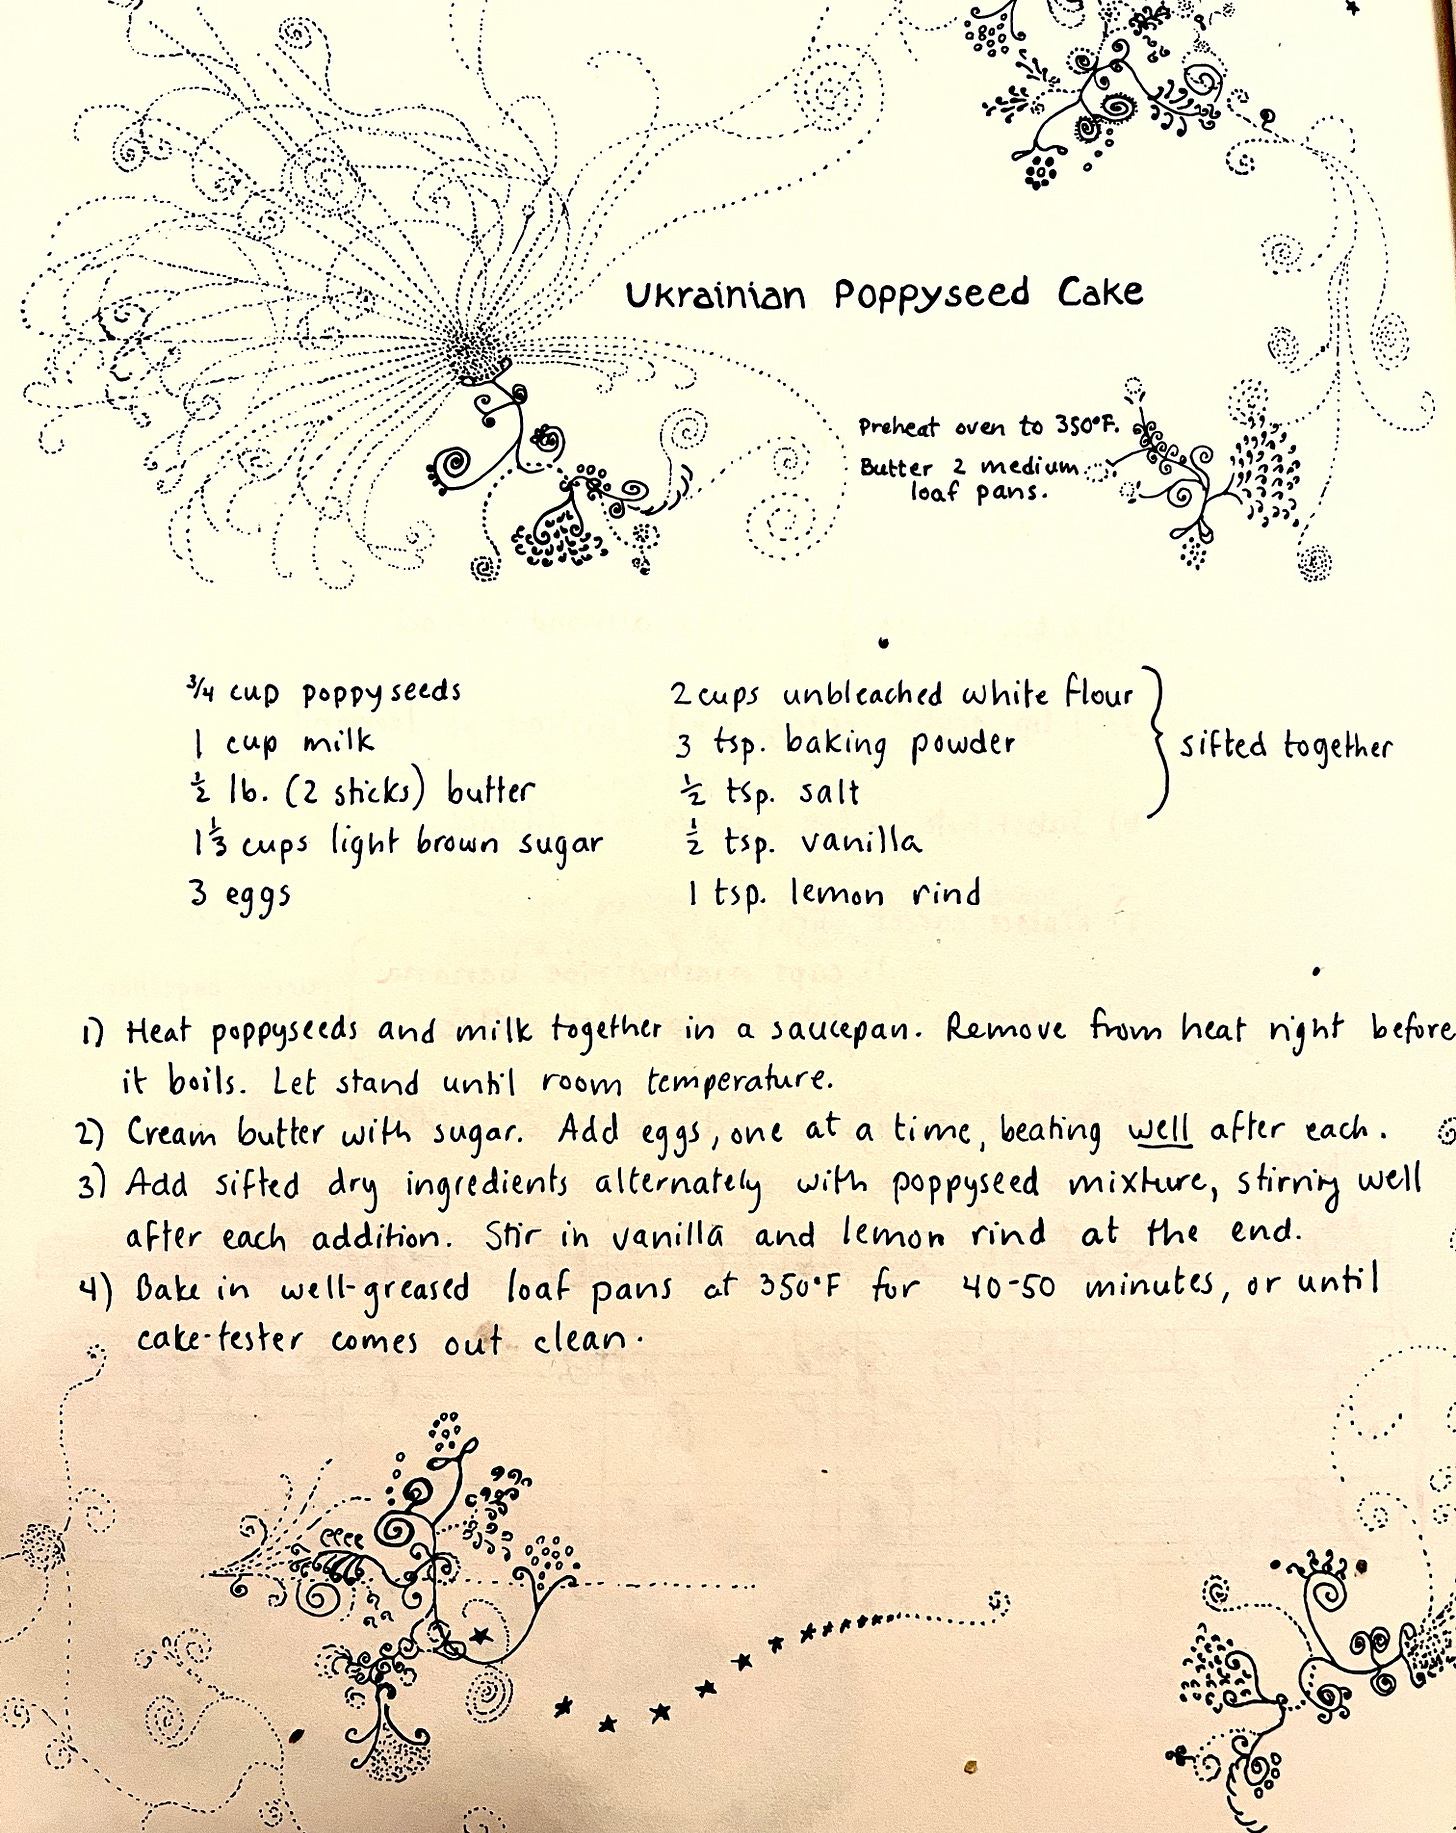 Ukrainian Poppyseed Cake
Preheat oven to 350°F.
Butter 2 medium
loaf pans.
3/4 cup poppyseeds
1 cup milk
1/2 lb. (2 sticks) butter
1 1/3 cups light brown sugar
3 eggs
2 cups unbleached white flour
3 tsp. baking powder
1/2 tsp. salt
sifted together
1/2 tsp. vanilla
1 tsp. lemon rind
1) Heat poppyseeds and milk together in a saucepan. Remove from heat right before
it boils. Let stand until room temperature.
2) Cream butter with sugar. Add eggs, one at a time, beating well after each.
3) Add sifted dry ingredients alternately with poppyseed mixture, stirring well
after each addition. Stir in vanilla and lemon rind at the end.
4) Bake in well-greased loaf pans at 350°F for 40-50 minutes, or until
cake-tester comes out clean.